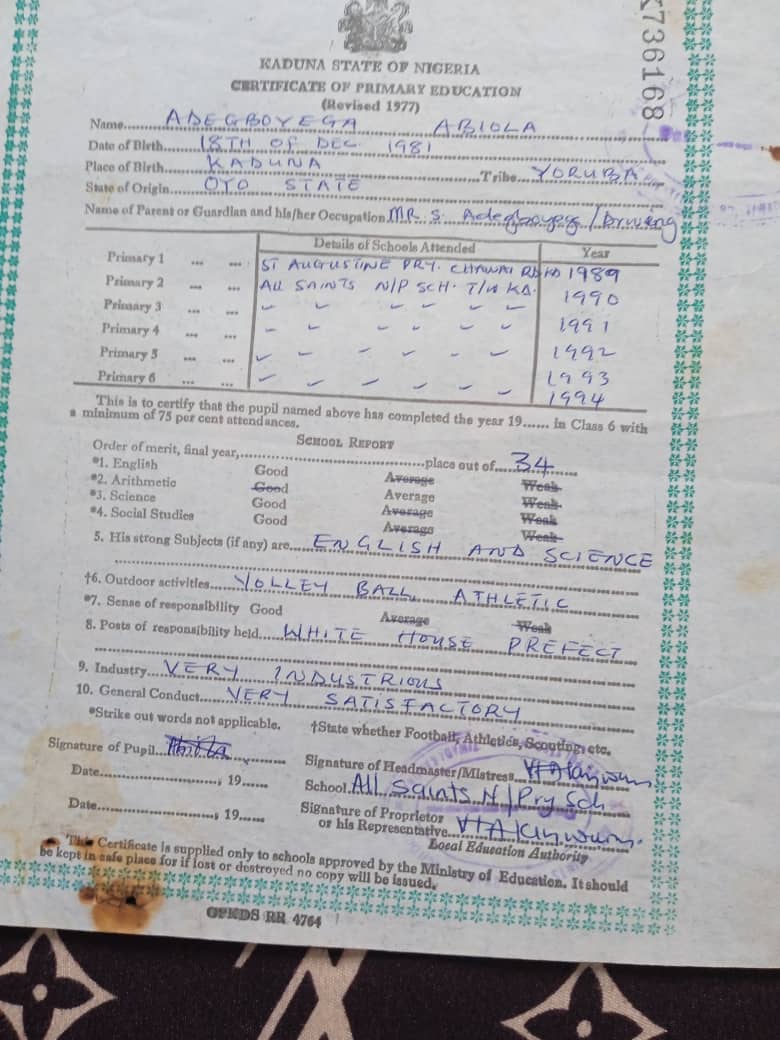 K736168
KADUNA STATE OF NIGERIA
CERTIFICATE OF PRIMARY EDUCATION
(Revised 1977)
Name......ADEGBOYEGA ABIOLA
Date of Birth......18TH OF DEC 1981
Place of Birth......KADUNA......Tribe...YORUBA
State of Origin......OYO STATE
Name of Parent or Guardian and his/her Occupation MR. S. Adegboyega /
Details of Schools Attended Year
Primary 1 ... ... ST AUGUSTINE PRY. CHAWAI RD KD 1989
Primary 2 ... ... ALL SAINTS N/P SCH. T/W KD. 1990
Primary 3 ... ... 1991
Primary 4 ... ... 1992
Primary 5 ... ... 1993
Primary 6 ... ... 1994
This is to certify that the pupil named above has completed the year 19...... in Class 6 with
a minimum of 75 per cent attendances.
SCHOOL REPORT
Order of merit, final year,......place out of......34
*1. English Good Average Weak
*2. Arithmetic Good Average Weak
*3. Science Good Average Weak
*4. Social Studies Good Average Weak
5. His strong Subjects (if any) are......ENGLISH AND SCIENCE
†6. Outdoor activities......VOLLEY BALL, ATHLETIC
*7. Sense of responsibility Good Average Weak
8. Posts of responsibility held......WHITE HOUSE PREFECT
9. Industry......VERY INDUSTRIOUS
10. General Conduct......VERY SATISFACTORY
*Strike out words not applicable. †State whether Football, Athletics, Scouting; etc.
Signature of Pupil...... Signature of Headmaster/Mistress......
Date......, 19...... School...All Saints N/Pry Sch
Date......, 19...... Signature of Proprietor
or his Representative......
Local Education Authority
This Certificate is supplied only to schools approved by the Ministry of Education. It should
be kept in safe place for if lost or destroyed no copy will be issued.
GPKDS RR 4764